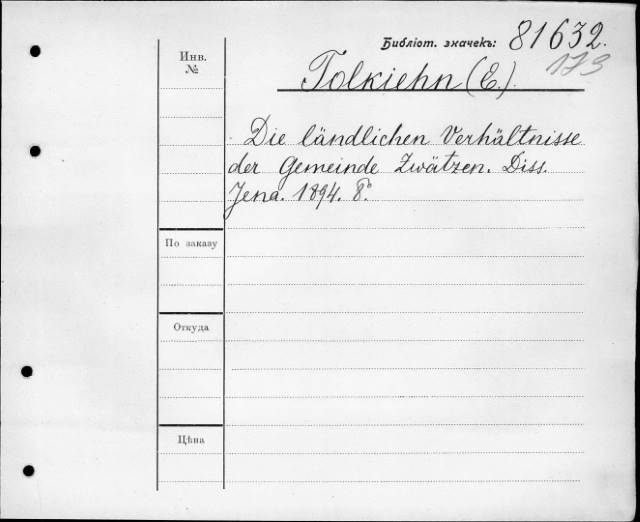 Библіот. значекъ: 81632.
173
Инв.
№
Tolkiehn (E.).
Die ländlichen Verhältnisse
der Gemeinde Zwätzen. Diss.
Jena. 1894. 8º.
По заказу
Откуда
Цѣна